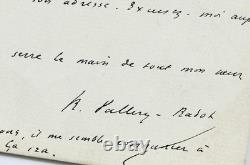 son adresse. Excusez-moi auprès
serre la main de tout mon cœur
R. Vallery-Radot
il me semble, à
Ça ira.